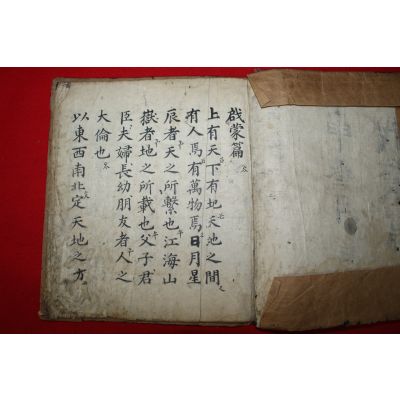 啓蒙篇
上有天下有地天地之間
有人焉有萬物焉日月星
辰者天之所繫也江海山
嶽者地之所載也父子君
臣夫婦長幼朋友者人之
大倫也
以東西南北定天地之方